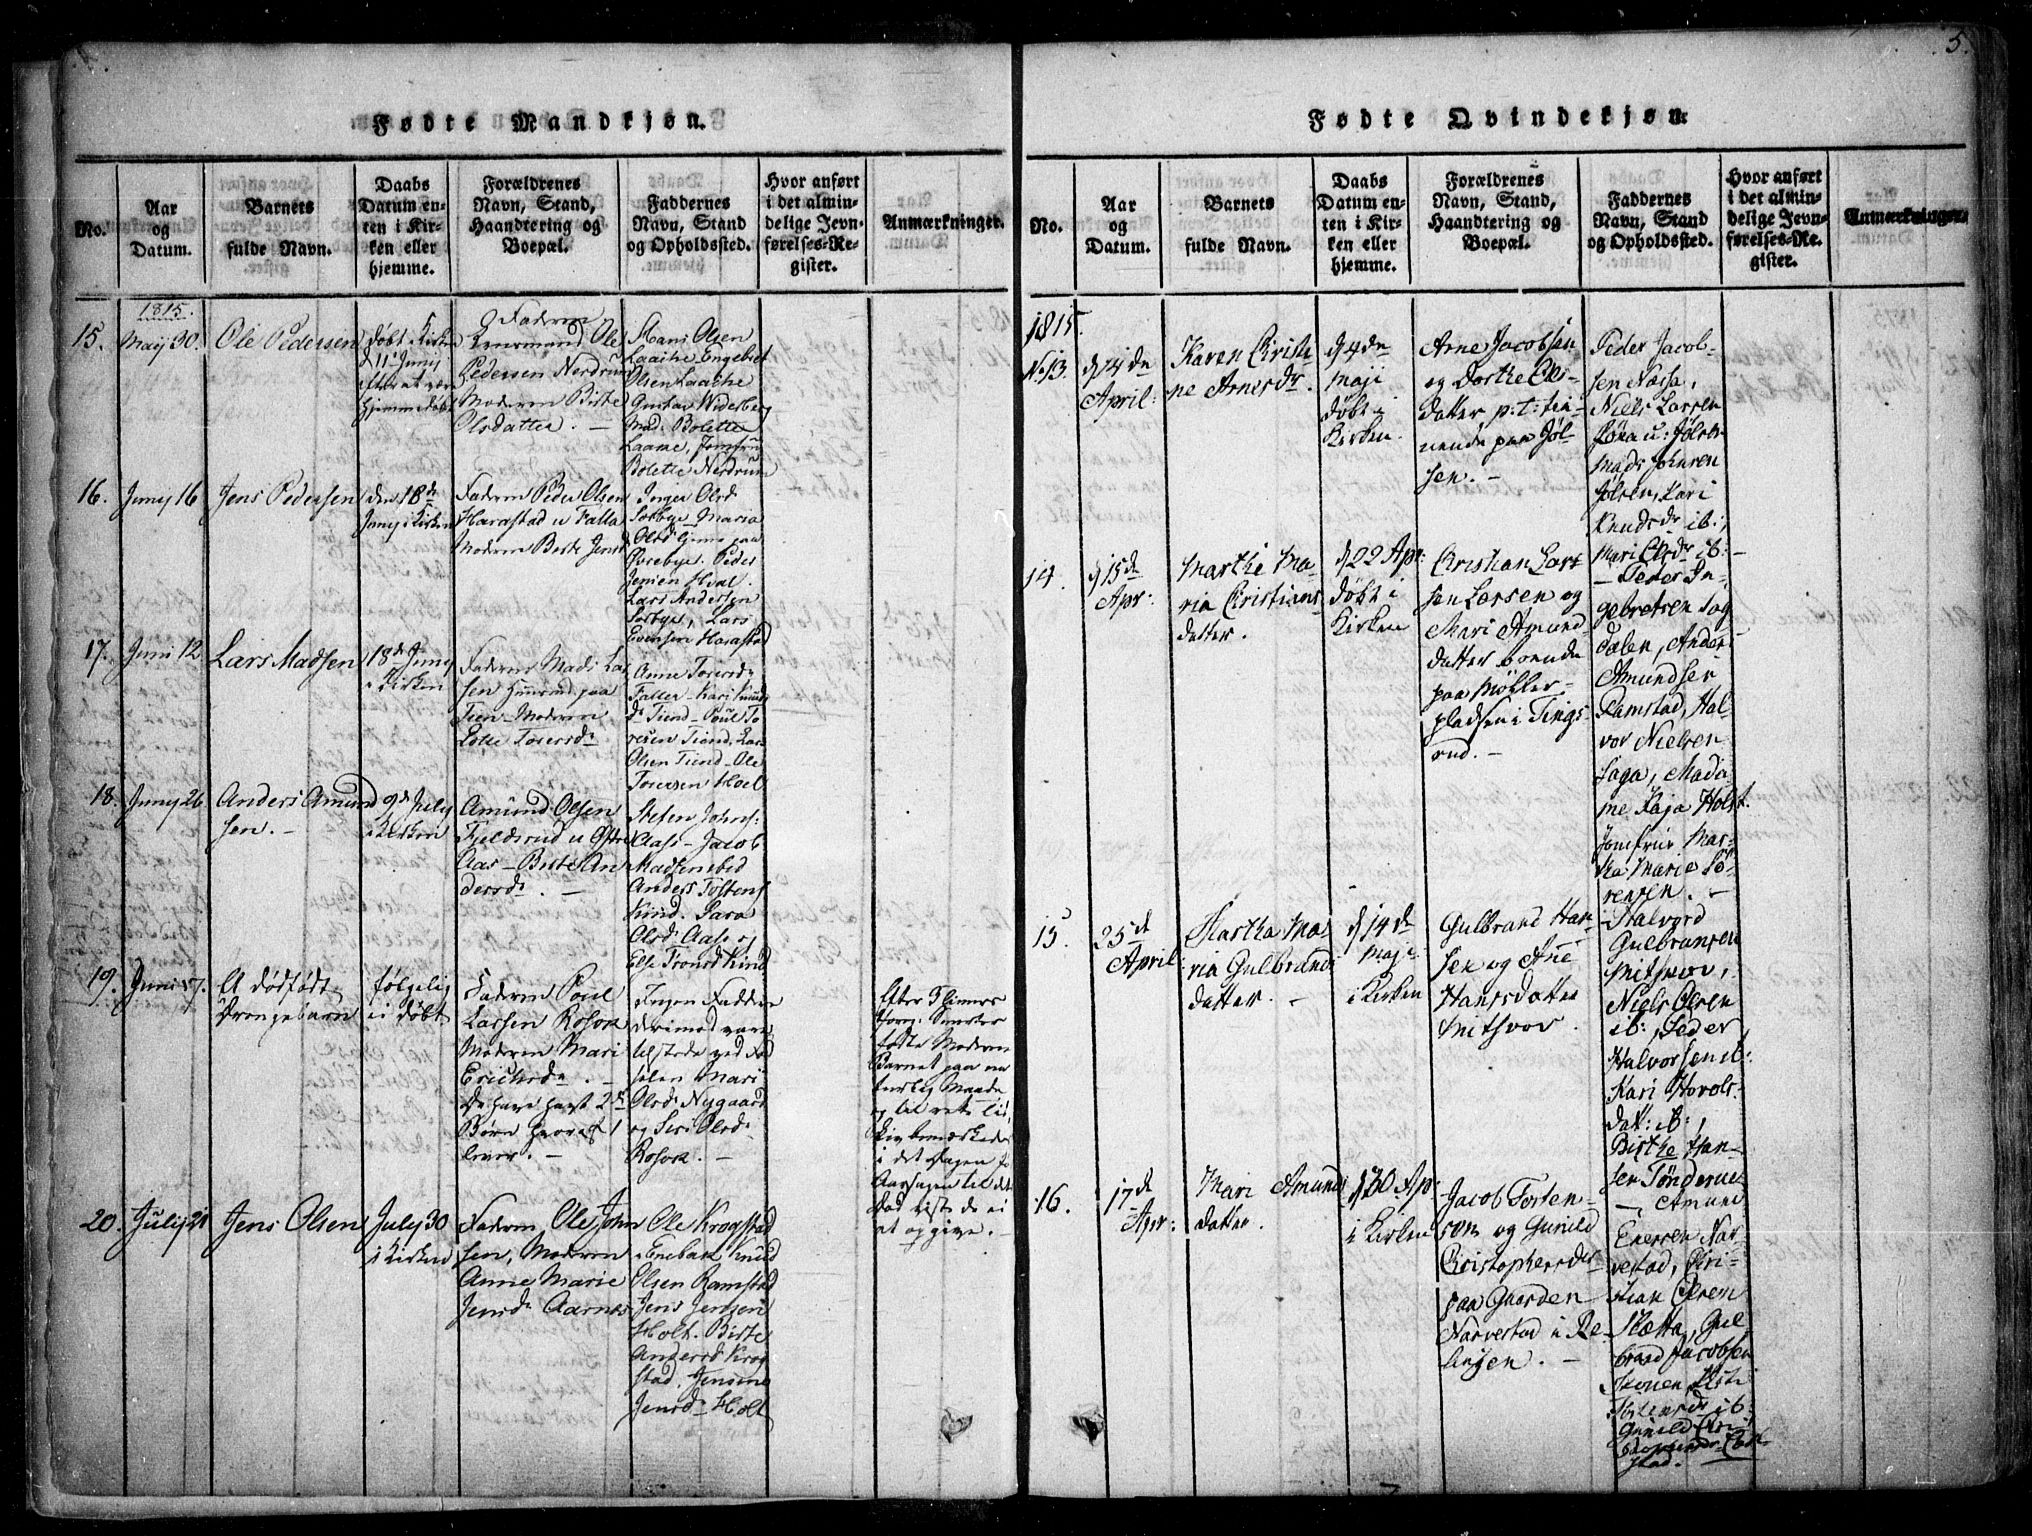 5.
Fødte Mandkjøn.
No.
Aar
og
Datum.
Barnets
fulde Navn.
Daabs
Datum en-
ten i Kir-
ken eller
hjemme.
Forældrenes
Navn, Stand,
Haandtering og
Boepæl.
Faddernes
Navn, Stand
og Opholdssted.
Hvor anført
i det almin-
delige Jevn-
førelses-Re-
gister.
Anmærkninger.
1815.
15.
Maij 30.
Ole Pedersen
Døbt i Kirken
d 11te Junij
efter at være
hjemmedøbt
Faderen
Ole
Pedersen Nerdrum
Moderen Birte
Olsdatter. –
Hans Olsen
Laache Engebret
Olsen Laache
Gustav Widerberg
Mad. Bolette
Laame, Jomfru
Bolette Nerdrum
16.
Junij 16
Jens Pedersen
den 18de
Junij i Kirken
Faderen Peder Olsen
Harastad u Falla
Moderen Berte Jensd
Inger Olsd
Sotbye – Maria
Olsd tjenne paa
Øvrebye. Peder
Jensen Hval.
Lars Andersen
Sotbye, Lars
Evensen Harastad
17.
Juni 12
Lars Madsen
18de Junij
i Kirken
Faderen Mads Lar
sen Huusmd paa
Tien – Moderen
Lotte Toresdr
Anne Toresdr
Faller – Kari Knud
dr Tiend – Poul To
resen Tiend. Lars
Olsen Tiend – Ole
Toresen Hoel
18.
Junij 26
Anders Amund
sen. –
9de July
i Kirken
Amund Olsen
Fjeldsrud u Østre
Aas – Birte An
dersdr. –
Stefen Johns:
Aas – Jacob
Madsen ibid
Anders Tostens
Kind. Sara
Olsdr Aas og
Else Tronsd Kind
19.
Juni 17.
A dødfødt
Drengebarn
følgelig
ei døbt
Faderen Poul
Larsen Rosok
Moderen Mari
Erichsdr. –
De have havt 2de
Børn hvoraf 1
lever. –
Ingen Faddere
derimod vare
tilstede ved Fød
selen Mari
Olsdr Nygaard
og Siri Olsdr
Rosok. –
Efter
fødte Moderen
Barnet paa na
turlig Maade
og til rette Tid,
i det
Aarsagen til det
Død viste de ei
at opgive. –
20.
July 21
Jens Olsen
July 30
i Kirken
Faderen Ole John
sen, Moderen
Anne Marie
Jensdr Aarnes
Ole Krogstad
i Enebak Knud
Olsen Ramstad
Jens Jensen
Holt. Birte
Andersd Krog
stad. Jensine
Jensdr Holt
Fødte Qvindekjøn.
No.
Aar
og
Datum.
Barnets
fulde Navn.
Daabs
Datum en-
ten i Kir-
ken eller
hjemme.
Forældrenes
Navn, Stand,
Haandtering og
Boepæl.
Faddernes
Navn, Stand
og Opholdssted.
Hvor anført
i det almin-
delige Jevn-
førelses-Re-
gister.
Anmærkninger.
1815.
No 13.
d 14de
April:
Karen Cristi-
ne Arnesdr.
d 4de
Maji
døbt i
Kirken.
Arne Jacobsen
og Dorthe Ols-
datter p: t: tie-
nende paa Jøl-
sen. –
Peder Jacob-
sen Næssa,
Niels Larsen
u: Jølsen
Mads Johnsen
Jølsen, Kari
Knudsdr ib:,
Mari Olsdr ib: –
14.
d 15de
Apr:
Marthe Ma-
ria Christians
datter.
d 22 Apr:
døbt i
Kirken
Cristian Lar-
sen Larsen og
Mari Amund-
datter boende
paa Møller-
pladsen i Tings-
rud. –
– Peder In-
gebretsen Sag
dalen, Anders
Amundsen
Ramstad, Hal-
vor Nielsen
Saga, Mada-
me Kaja Holst.
Jomfrue Mar-
tha Marie Sø-
rensen. –
15.
25de
April
Martha Ma-
ria Gulbrands
datter. –
d 14de
Maji
i Kirken
Gulbrand Han-
sen og Ane
Hansdatter
Mitsvov.
– Halvord
Gulbransen
Mitsvov,
Niels Olsen
ib:, Peder
Halvorsen ib:
Kari Hovols-
dat: ib:,
Birthe Han-
sen Tønderne
16.
17de
Apr:
Mari Amunds
datter.
d 30 Ap:
i Kirken
Jacob Tosten-
son og Gunild
Cristophersdr
paa Gaarden
Narvestad i Re-
lingen. –
– Amund
Enersen Nar-
vestad, Cri-
stian Olsen
Slætta, Gul-
brand Jacobsen
ib:
Gunild Cri-
stad.